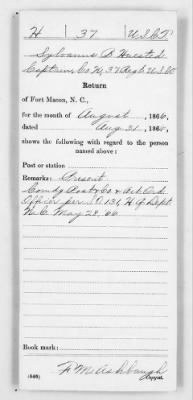 H | 37 | U.S.C.T.
Sylvanus B. Husted
Captain, Co. H, 37 Reg't U.S.C.T.
Return
of Fort Macon, N. C.,
for the month of August, 1866,
dated Aug. 31, 1866,
shows the following with regard to the person
named above:
Post or station
Remarks: Present
Comdg Post & Co & Act. Ord.
Officer per S.O. 131, Hd Qrs Dept
N.C. May 28, 66
Book mark:
(546)
Copyist.